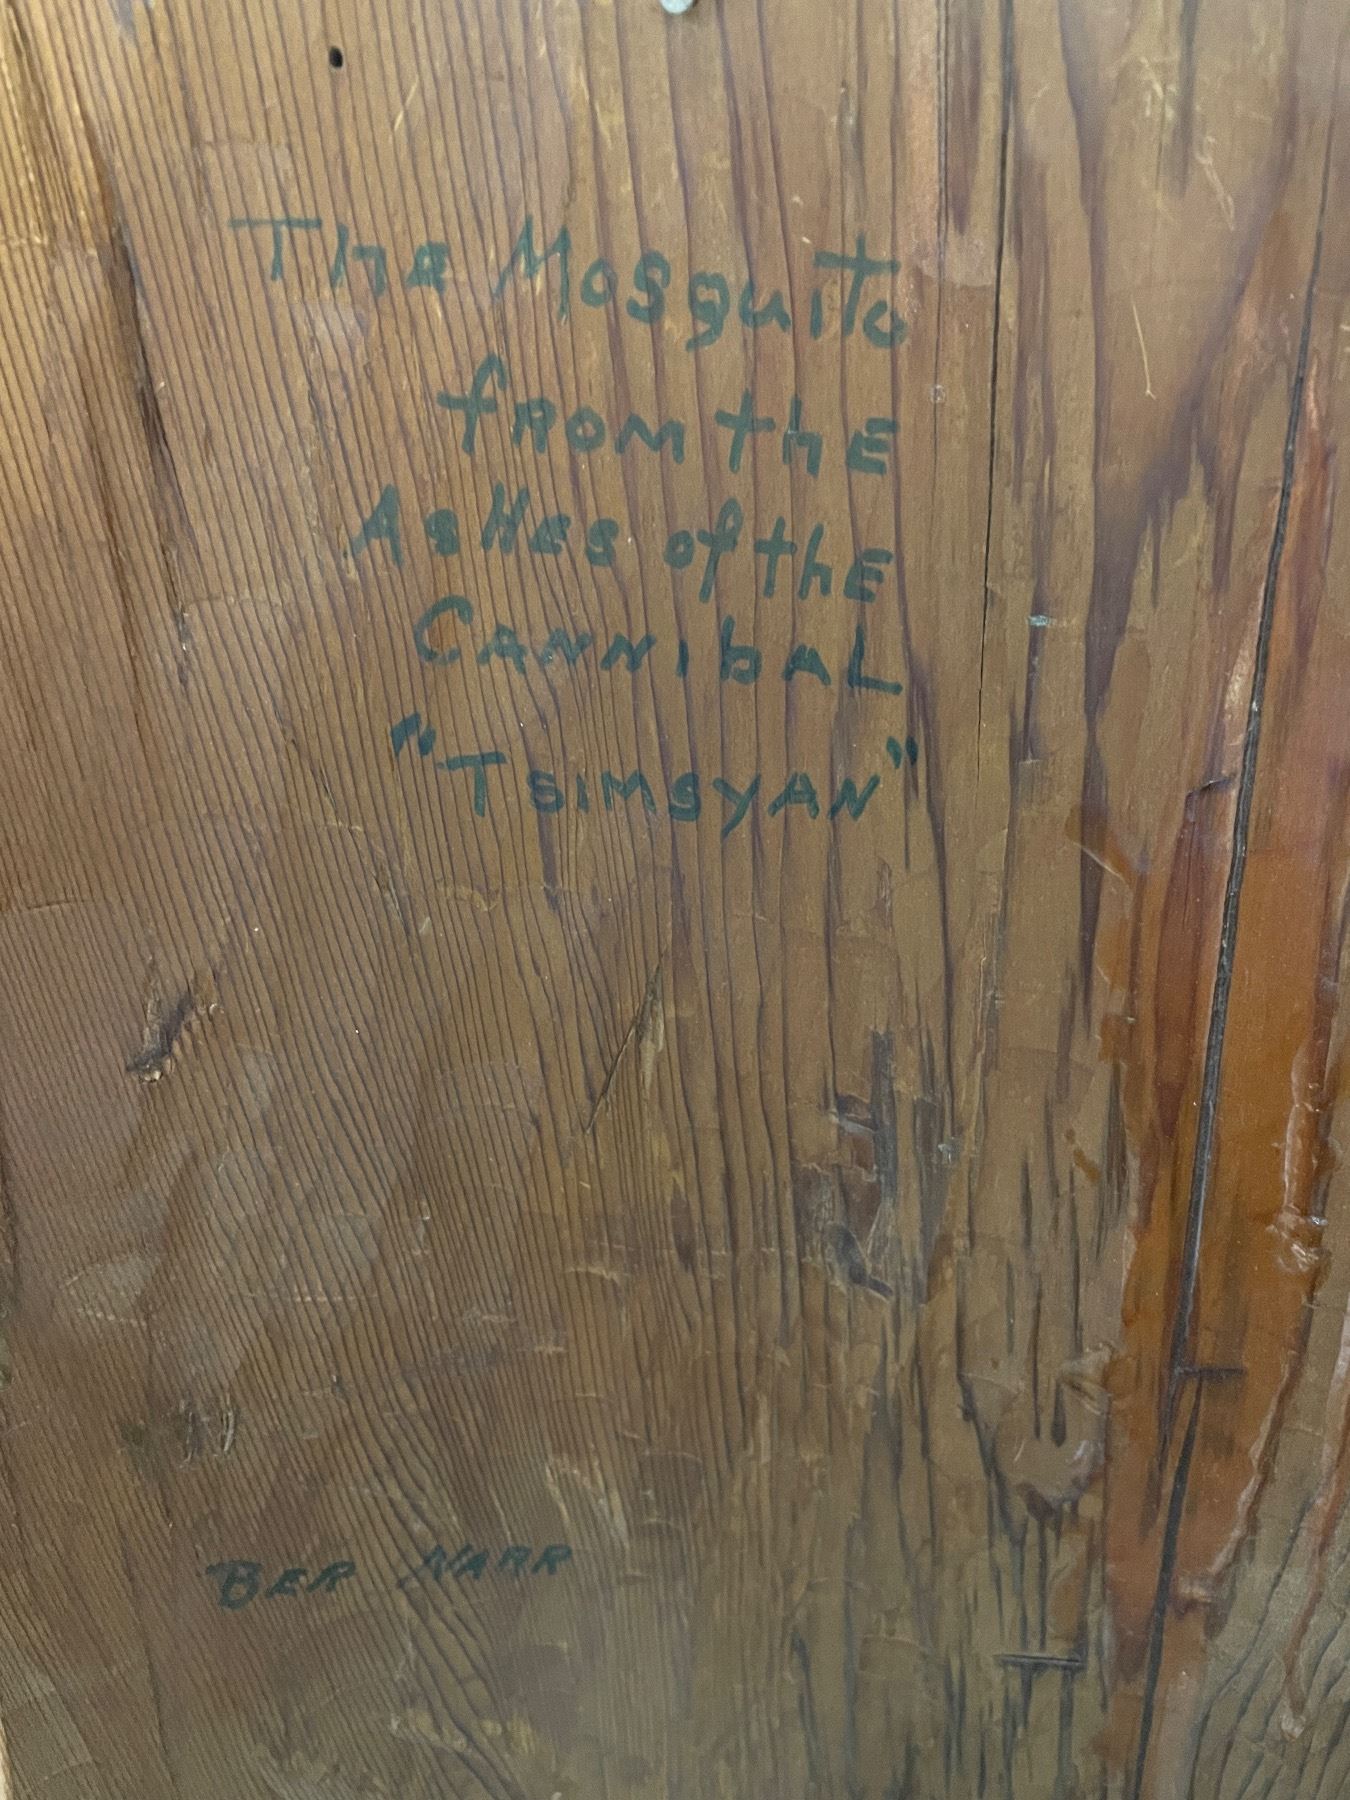 The Mosquito
from the
Ashes of the
Cannibal
"Tsimsyan"
Ber Narr